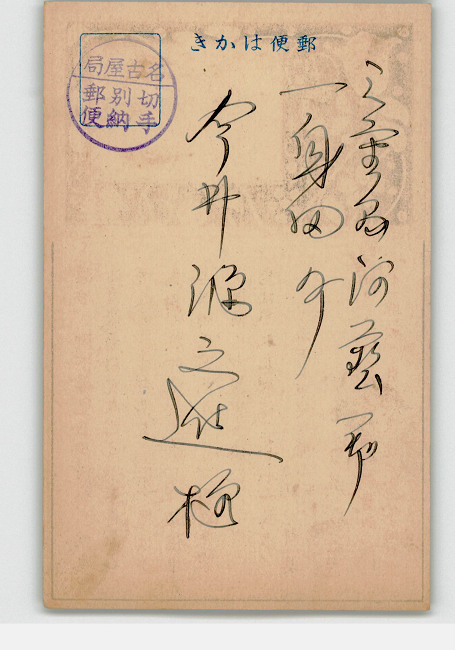 郵便はかき
名古屋局
切手
別納
郵便
三重県河藝郡
一身田町
今井源之 様